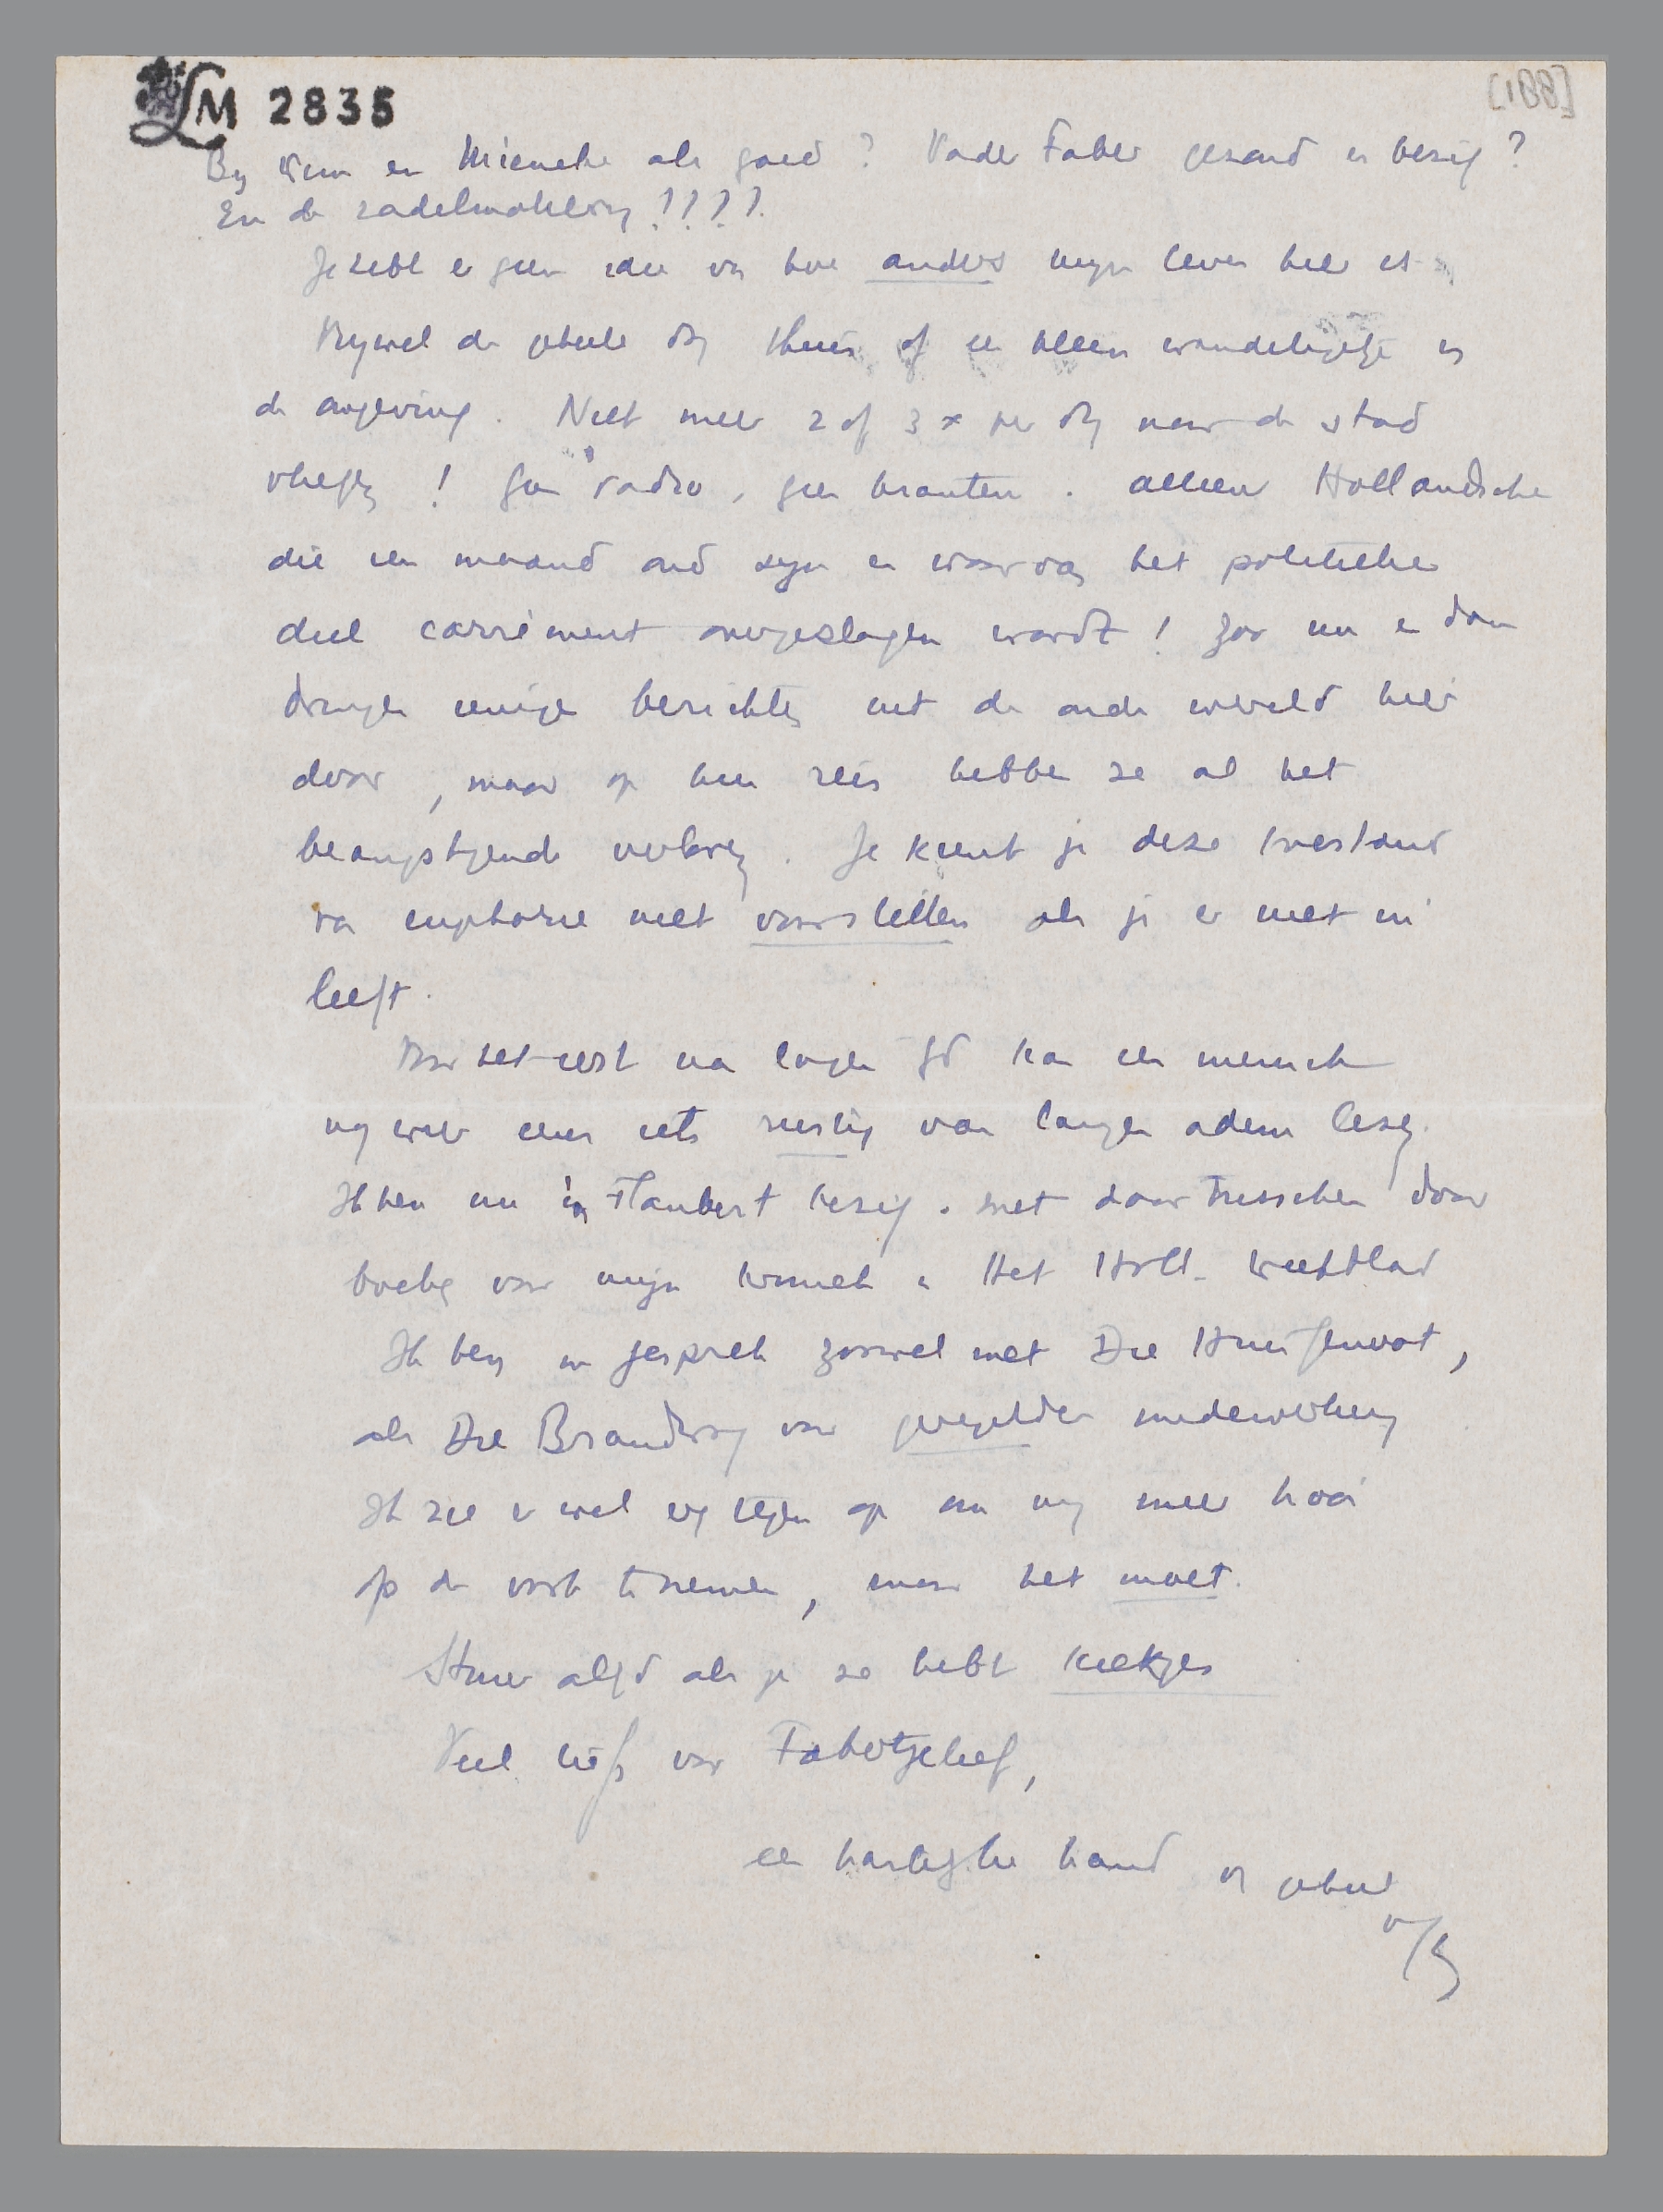 LM 2835
[188]
By Wim en Mieneke als goed? Vader Faber gezond en bezig?
En de zadelmakery????
Je hebt er geen idee van hoe anders mijn leven hier is
Bijwel de geheele dag thuis of een kleine wandelingetje in
de omgeving. Niet meer 2 of 3 x per dag naar de stad
vliegen! Geen radio, geen kranten. alleen Hollandsche
die een maand oud zijn en waarvan het politieke
deel carrément overgeslagen wordt! Zoo nu en dan
dringen eenige berichten uit de oude wereld hier
door, maar op hun reis hebben ze al het
beangstigende verloren. Je kunt je deze toestand
van euphorie niet voorstellen als je er niet in
leeft.
Voor het eerst na langen tijd kan een mensch
nog weer eens iets rustig van langen adem lezen.
Ik ben nu in Flaubert bezig. met daar tusschen door
boeken voor mijn kroniek in Het Holl. Weekblad
Ik ben in gesprek zoowel met Die Huisgenoot,
als Die Brandwag voor geregelde medewerking
Ik zie er wel erg tegen op om nog meer hooi
op de vork te nemen, maar het moet.
Stuur altijd als je ze hebt kiekjes
Veel liefs voor Fabertjelief,
een hartelijke hand van geheel